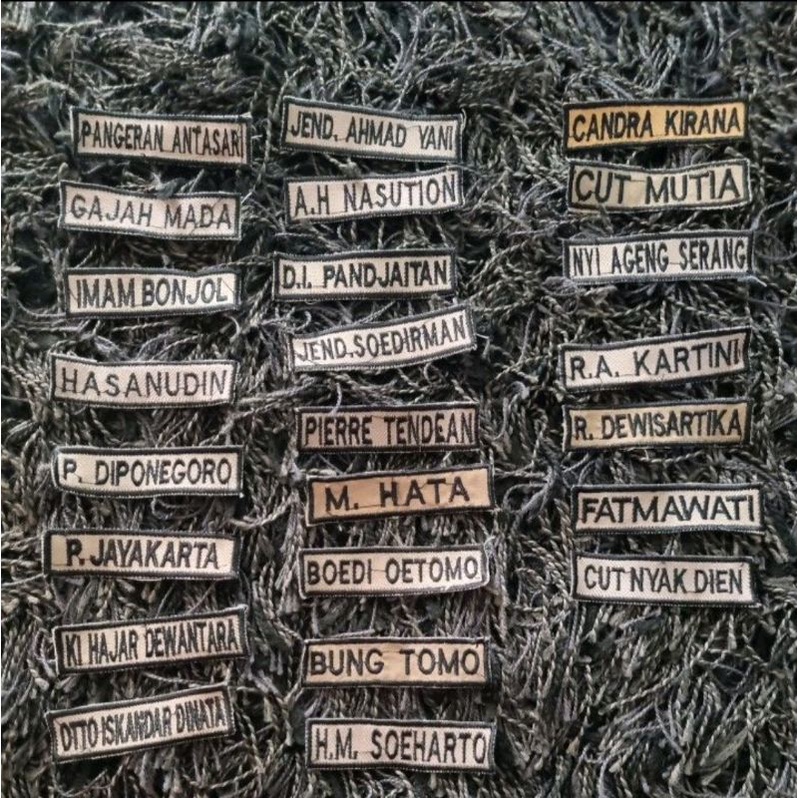 PANGERAN ANTASARI
GAJAH MADA
IMAM BONJOL
HASANUDIN
P. DIPONEGORO
P. JAYAKARTA
KI HAJAR DEWANTARA
OTTO ISKANDAR DINATA
JEND. AHMAD YANI
A.H NASUTION
D.I. PANDJAITAN
JEND. SOEDIRMAN
PIERRE TENDEAN
M. HATA
BOEDI OETOMO
BUNG TOMO
H.M. SOEHARTO
CANDRA KIRANA
CUT MUTIA
NYI AGENG SERANG
R.A. KARTINI
R. DEWISARTIKA
FATMAWATI
CUT NYAK DIEN